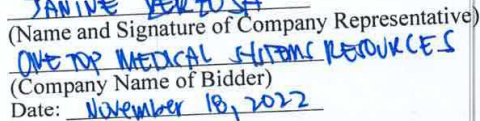 JANINE
(Name and Signature of Company Representative)
ONE TOP MEDICAL SYSTEMS RESOURCES
(Company Name of Bidder)
Date: November 18, 2022